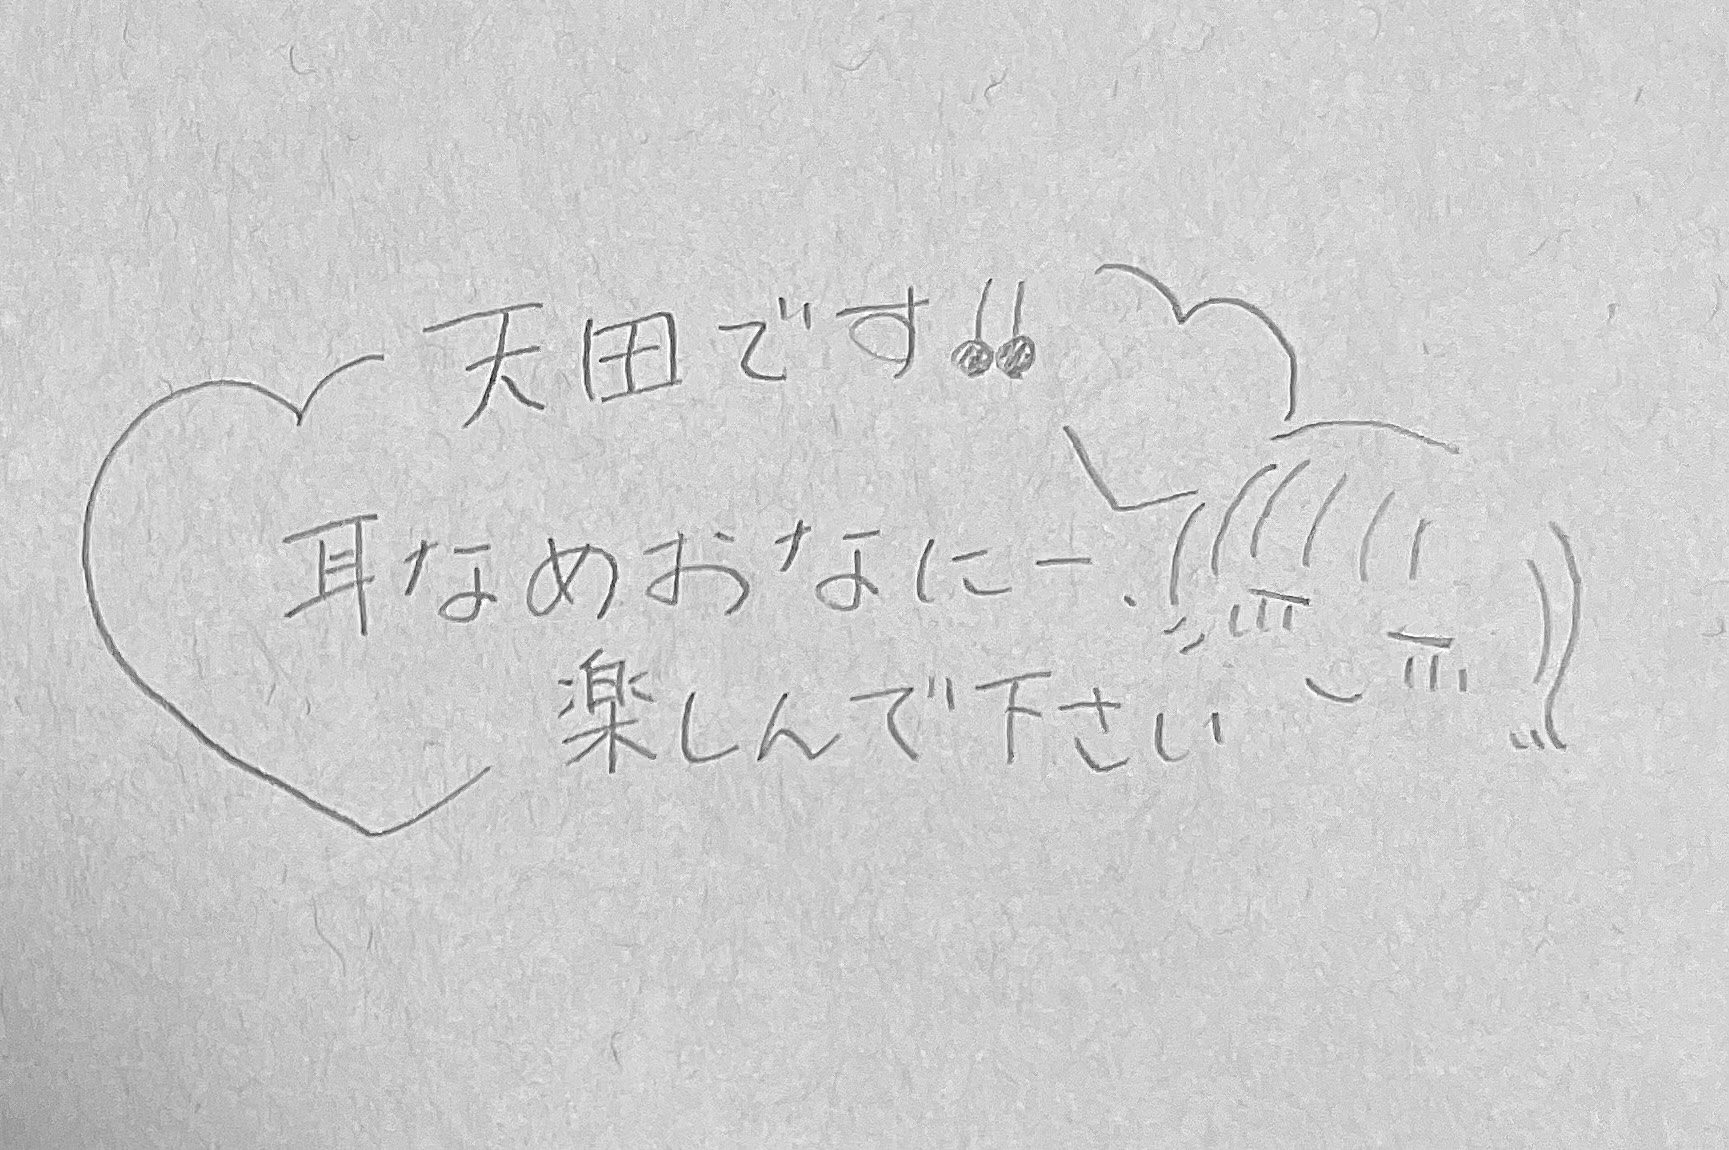 天田です!!
耳なめおなにー、
楽しんで下さい